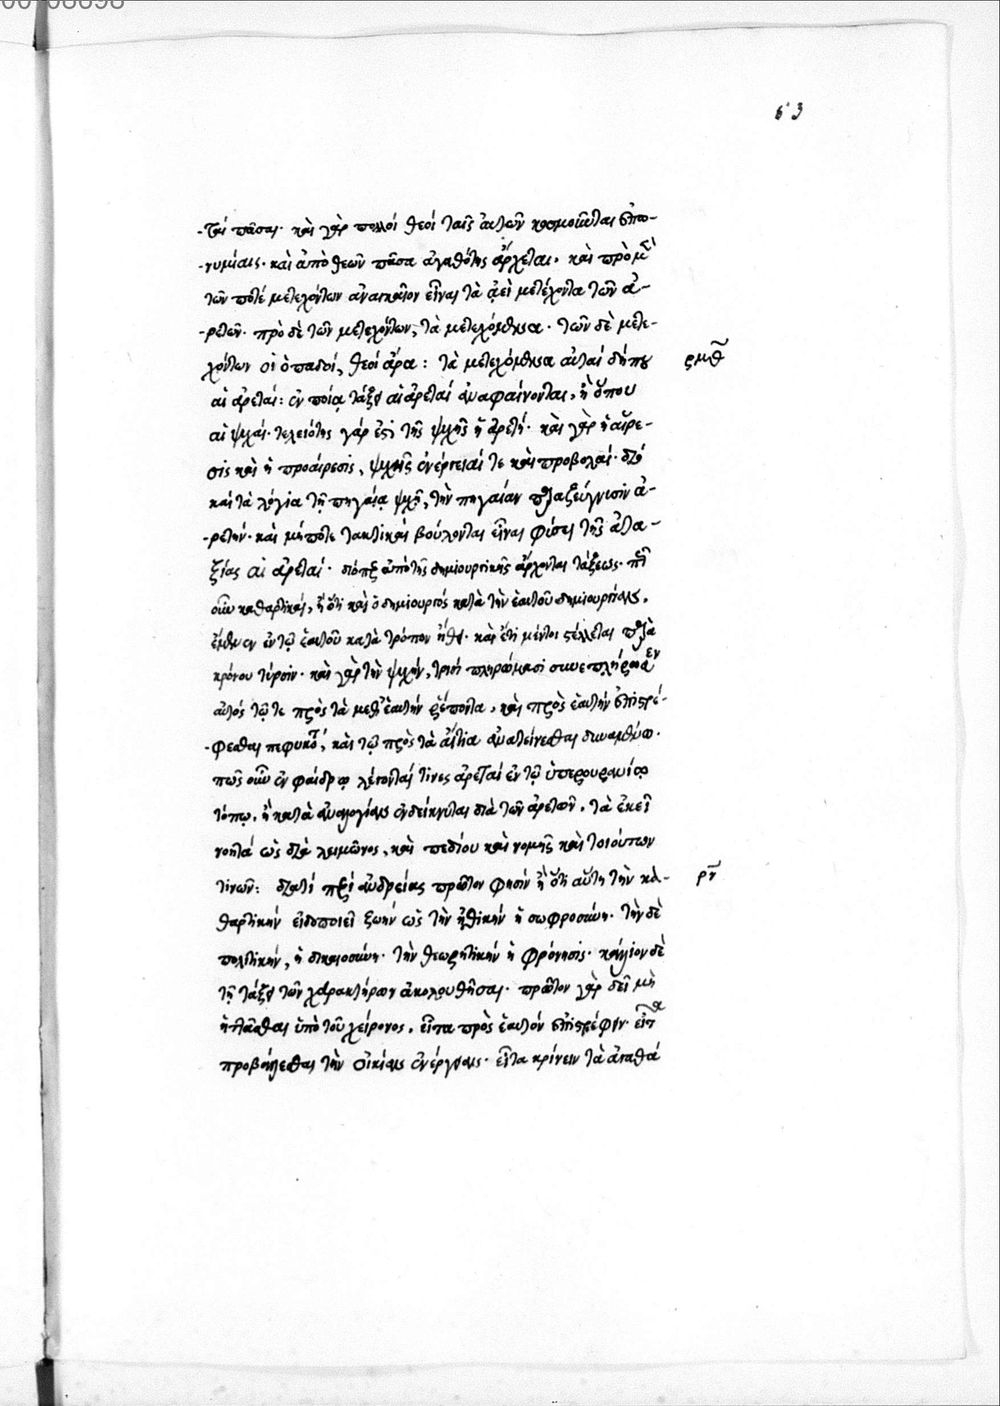 63
-ταὶ πᾶσαι. καὶ γὰρ πολλοὶ θεοὶ ταῖς αὐτῶν κοσμοῦνται ἐπω-
-νυμίαις. καὶ ἀπὸ θεῶν πᾶσα ἀγαθότης ἄρχεται. καὶ πρὸ μὲν
τῶν ποτὲ μετεχόντων ἀναγκαῖον εἶναι τὰ ἀεὶ μετέχοντα τῶν ἀ-
-ρετῶν. πρὸ δὲ τῶν μετεχόντων, τὰ μετεχόμενα. τῶν δὲ μετε-
χόντων οἱ ὀπαδοί, θεοὶ ἄρα: τὰ μετεχόμενα αὐταὶ δήπου
ρμθ
αἱ ἀρεταί: ἐν ποίᾳ τάξει αἱ ἀρεταὶ ἀναφαίνονται, ἢ ὅπου
αἱ ψυχαί. τελειότης γάρ ἐστι τῆς ψυχῆς ἡ ἀρετή. καὶ γὰρ ἡ αἵρε-
σις καὶ ἡ προαίρεσις, ψυχαῖς ἐνέργειαί τε καὶ προβολαί. διὸ
καὶ τὰ λόγια τῇ πηγαίᾳ ψυχῇ, τὴν πηγαίαν παραζεύγνυσιν ἀ-
-ρετήν. καὶ μήποτε τακτικαὶ βούλονται εἶναι φύσει τῆς ἀτα-
ξίας αἱ ἀρεταί. διόπερ ἀπὸ τῆς δημιουργικῆς ἄρχονται τάξεως. πῇ
οὖν καθαρτικαί, ἢ ὅτι καὶ ὁ δημιουργὸς κατὰ τὴν ἑαυτοῦ δημιουργίαν,
ἔμεινεν ἐν τῷ ἑαυτοῦ κατὰ τρόπον ἤθει. καὶ ἔτι μέντοι στέλλεται παρὰ
κρόνου τύρσιν. καὶ γὰρ τὴν ψυχήν, τρισὶ πληρώμασι συνεπλήρωσεν
αὐτὸς τῷ τε πρὸς τὰ μεθ' ἑαυτὴν ῥέποντα, καὶ πρὸς ἑαυτὴν ἐπιστρέ-
-φεσθαι πεφυκότι, καὶ τῷ πρὸς τὰ αἴτια ἀνατείνεσθαι δυναμένῳ.
πῶς οὖν ἐν φαίδρῳ λέγονταί τινες ἀρεταὶ ἐν τῷ ὑπερουρανίῳ
τόπῳ, ἢ κατὰ ἀναλογίαν ἐνδείκνυται διὰ τῶν ἀρετῶν. τὰ ἐκεῖ
νοητὰ ὡς διὰ λειμῶνος, καὶ πεδίου καὶ νομῆς καὶ τοιούτων
τινῶν: διατί περὶ ἀνδρείας πρῶτον φησὶν ἢ ὅτι αὕτη τὴν κα-
ρν
θαρτικὴν εἰδοποιεῖ ζωὴν ὡς τὴν ἠθικὴν ἡ σωφροσύνη. τὴν δὲ
πολιτικήν, ἡ δικαιοσύνη. τὴν θεωρητικὴν ἡ φρόνησις. κάλλιον δὲ
τῇ τάξει τῶν χαρακτήρων ἀκολουθῆσαι. πρῶτον γὰρ δεῖ μὴ
ἡττᾶσθαι ὑπὸ τοῦ χείρονος. εἶτα πρὸς ἑαυτὸν ἐπιστρέφειν. εἶτα
προβάλλεσθαι τὴν οἰκείαν ἐνέργειαν. εἶτα κρίνειν τὰ ἀγαθὰ